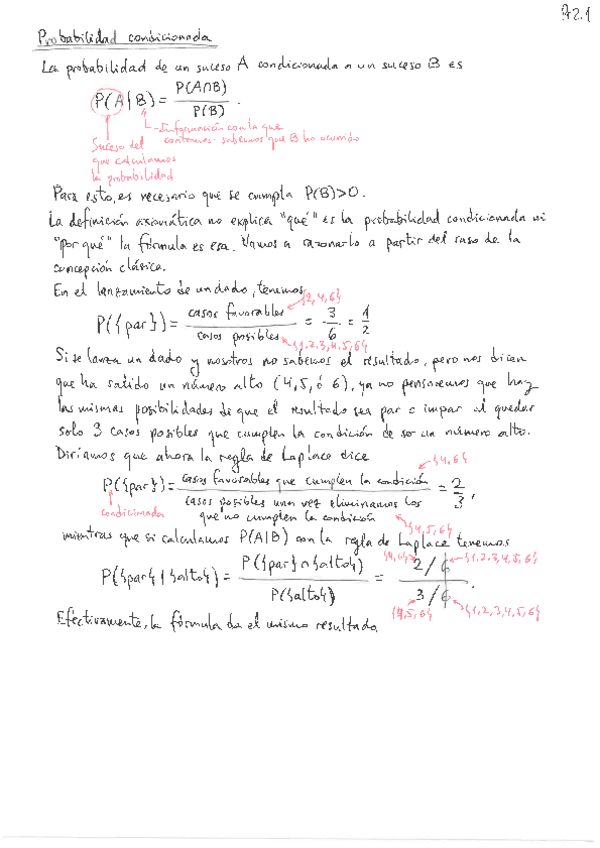 Pr 2.1
Probabilidad condicionada
La probabilidad de un suceso A condicionada a un suceso B es
P(A|B) = P(A∩B) / P(B) .
Información con la que
contamos: sabemos que B ha ocurrido
Suceso del
que calculamos
la probabilidad
Para esto, es necesario que se cumpla P(B)>0.
La definición axiomática no explica "qué" es la probabilidad condicionada ni
"por qué" la fórmula es esa. Vamos a razonarlo a partir del caso de la
concepción clásica.
En el lanzamiento de un dado, tenemos
{2,4,6}
P({par}) = casos favorables / casos posibles = 3/6 = 1/2
{1,2,3,4,5,6}
Si se lanza un dado y nosotros no sabemos el resultado, pero nos dicen
que ha salido un número alto (4, 5, ó 6), ya no pensaremos que hay
las mismas posibilidades de que el resultado sea par o impar al quedar
solo 3 casos posibles que cumplen la condición de ser un número alto.
Diríamos que ahora la regla de Laplace dice
{4,6}
P({par}) = casos favorables que cumplen la condición / casos posibles una vez eliminamos los que no cumplen la condición = 2/3,
condicionada
{4,5,6}
mientras que si calculamos P(A|B) con la regla de Laplace tenemos
{4,6} {1,2,3,4,5,6}
P({par}|{alto}) = P({par}∩{alto}) / P({alto}) = 2/6 / 3/6 .
{4,5,6} {1,2,3,4,5,6}
Efectivamente, la fórmula da el mismo resultado.